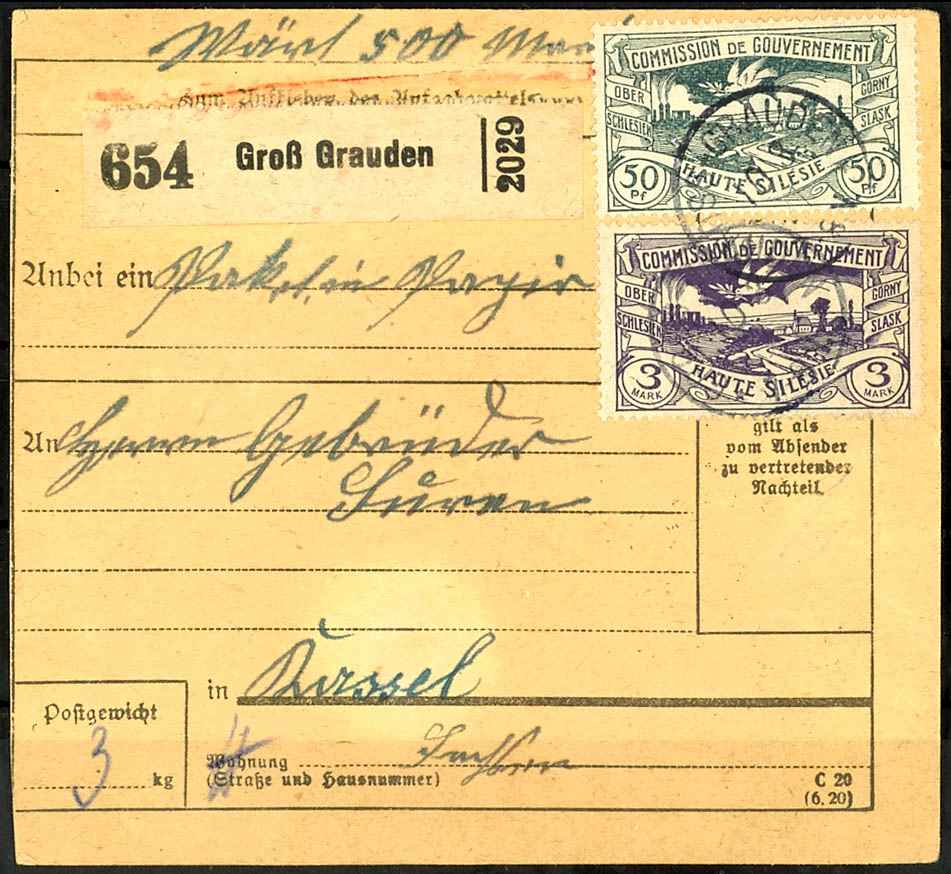 Wärt 500 Mark
COMMISSION DE GOUVERNEMENT
OBER SCHLESIEN
GORNY SLASK
50 Pf
HAUTE SILESIE
50 Pf
GRAUDEN
Zum Aufkleben des Aufgabezettels
654 Groß Grauden 2029
COMMISSION DE GOUVERNEMENT
OBER SCHLESIEN
GORNY SLASK
3 MARK
HAUTE SILESIE
3 MARK
Anbei ein Paket in Papir
An Herrn Gebrüder
gilt als
vom Absender
zu vertretender
Nachteil
in Kassel
Postgewicht
3 kg
Wohnung
(Straße und Hausnummer)
C 20
(6. 20)